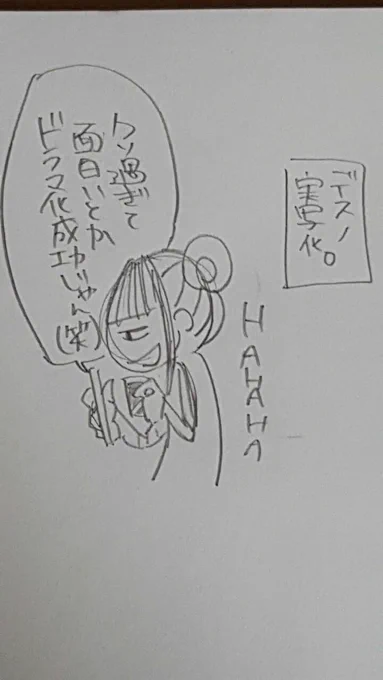 デスノ
実写化。
クソ過ぎて
面白いとか
ドラマ化成功じゃん
(笑)
HAHAHA